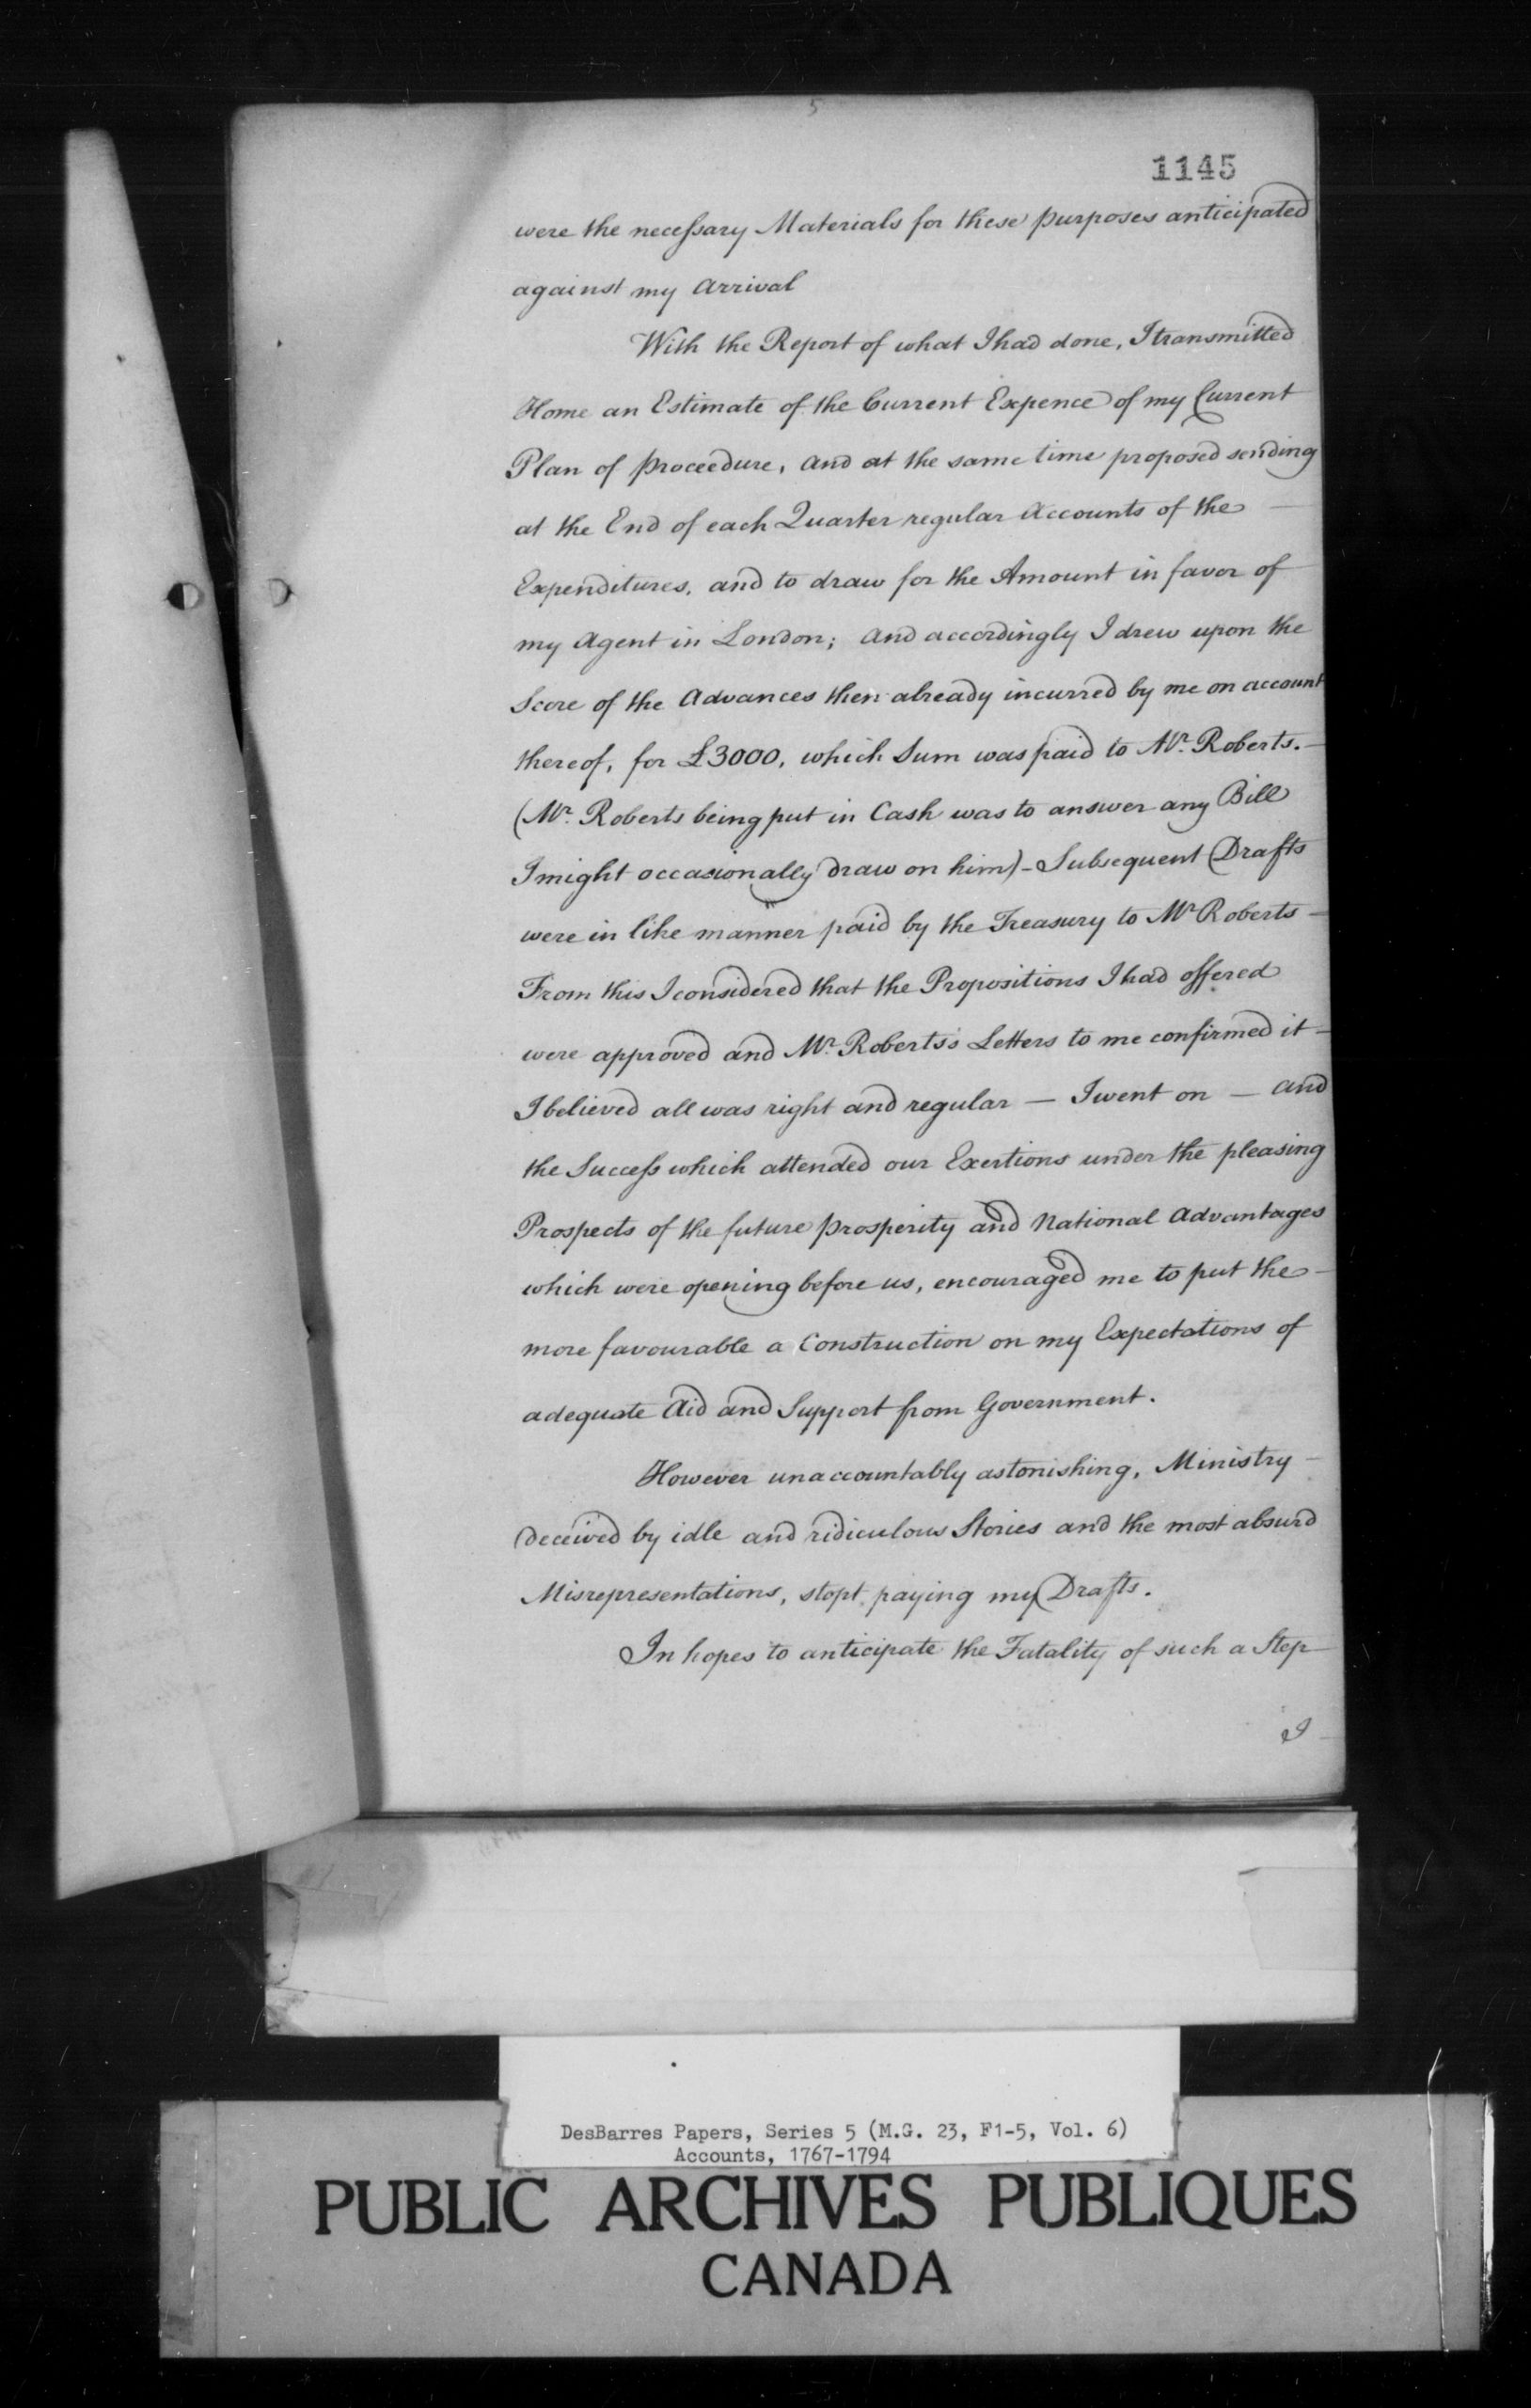 5
1145
were the neceſsary Materials for these purposes anticipated
against my arrival
With the Report of what I had done, I transmitted
Home an Estimate of the Current Expence of my Current
Plan of proceedure, and at the same time proposed sending
at the End of each Quarter regular accounts of the —
Expenditures, and to draw for the Amount in favor of
my Agent in London; and accordingly I drew upon the
Score of the Advances then already incurred by me on account
thereof, for £3000, which Sum was paid to Mr. Roberts. —
(Mr. Roberts being put in Cash was to answer any Bill
I might occasionally draw on him) - Subsequent Drafts
were in like manner paid by the Treasury to Mr Roberts —
From this I considered that the Propositions I had offered
were approved and Mr. Roberts's Letters to me confirmed it —
I believed all was right and regular — I went on — and
the Succeſs which attended our Exertions under the pleasing
Prospects of the future prosperity and National Advantages
which were opening before us, encouraged me to put the —
more favourable a Construction on my Expectations of
adequate Aid and Support from Government.
However unaccountably astonishing, Ministry —
deceived by idle and ridiculous Stories and the most absurd
Misrepresentations, stopt paying my Drafts.
In hopes to anticipate the Fatality of such a Step
I
DesBarres Papers, Series 5 (M.G. 23, F1-5, Vol. 6)
Accounts, 1767-1794
PUBLIC ARCHIVES PUBLIQUES
CANADA